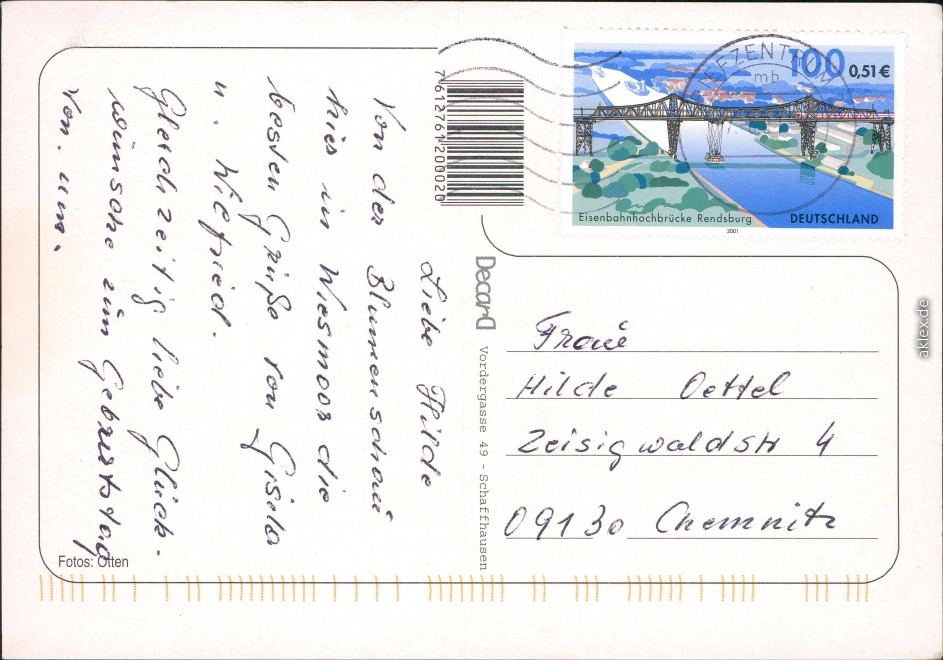 Liebe Hilde
Von der Blumenschau
hier in Wiesmoor die
besten Grüße von Gisela
u. Wilfried.
Gleichzeitig liebe Glück-
wünsche zum Geburtstag
Von. uns.
Fotos: Otten
7612761200020
Decard Vordergasse 49 - Schaffhausen
BRIEFZENTRUM
mb
100 0,51€
Eisenbahnhochbrücke Rendsburg DEUTSCHLAND
2001
Frau
Hilde Oettel
Zeisigwaldstr 4
09130 Chemnitz
aklex.de